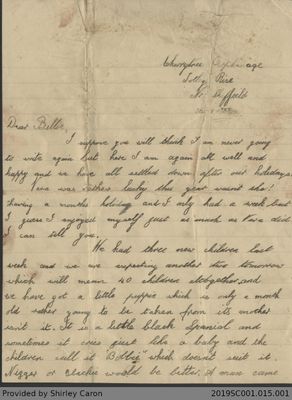 Cherrytree Orphanage
Totley Rise
Nr. Sheffield
Dear Bella,
I suppose you will think I am never going
to write again but here I am again all well and
happy and we have all settled down after our holidays.
Kora was rather lucky this year wasn't she!
having a months holiday and I only had a week but
I guess I enjoyed myself just as much as Kora did
I can tell you.
We had three new children last
week and we are expecting another two tomorrow
which will mean 40 children altogether, and
we have got a little puppie which is only a month
old rather young to be taken from its mother
isn't it. It is a little black Spaniel and
sometimes it cries just like a baby and the
children call it "Bobbie" which doesn't suit it.
Nigger or Blackie would be better. A man came
Provided by Shirley Caron
2019SC001.015.001